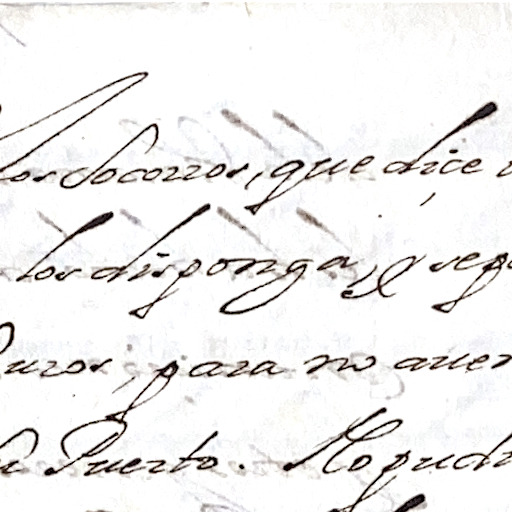 los Socorros, que diçe
los disponga, y se
para no auer
Puerto. No pudi